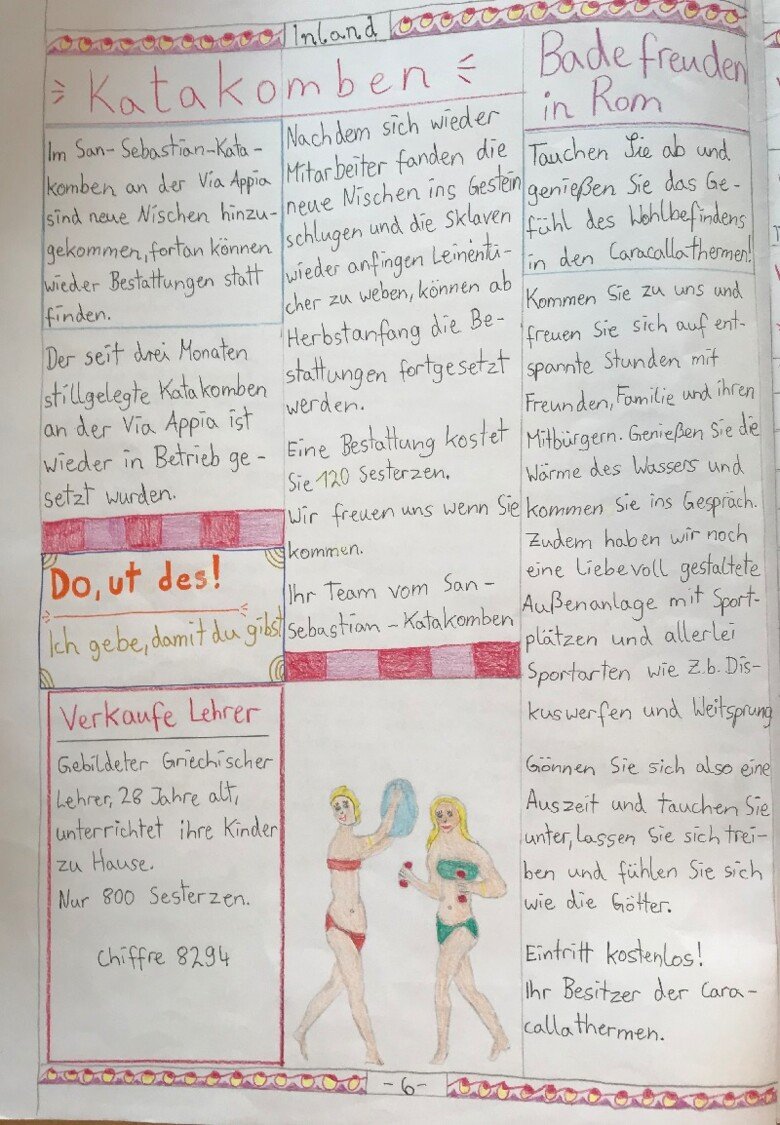 Inland
Katakomben
Im San-Sebastian-Kata-
komben an der Via Appia
sind neue Nischen hinzu-
gekommen, fortan können
wieder Bestattungen statt
finden.
Der seit drei Monaten
stillgelegte Katakomben
an der Via Appia ist
wieder in Betrieb ge-
setzt wurden.
Nachdem sich wieder
Mitarbeiter fanden die
neue Nischen ins Gestein
schlugen und die Sklaven
wieder anfingen Leinentü-
cher zu weben, können ab
Herbstanfang die Be-
stattungen fortgesetzt
werden.
Eine Bestattung kostet
Sie 120 Sesterzen.
Wir freuen uns wenn Sie
kommen.
Ihr Team vom San-
Sebastian-Katakomben
Do, ut des!
Ich gebe, damit du gibst
Verkaufe Lehrer
Gebildeter Griechischer
Lehrer, 28 Jahre alt,
unterrichtet ihre Kinder
zu Hause.
Nur 800 Sesterzen.
Chiffre 8294
Badefreuden
in Rom
Tauchen Sie ab und
genießen Sie das Ge-
fühl des Wohlbefindens
in den Caracallathermen!
Kommen Sie zu uns und
freuen Sie sich auf ent-
spannte Stunden mit
Freunden, Familie und ihren
Mitbürgern. Genießen Sie die
Wärme des Wassers und
kommen Sie ins Gespräch.
Zudem haben wir noch
eine liebevoll gestaltete
Außenanlage mit Sport-
plätzen und allerlei
Sportarten wie z.b. Dis-
kuswerfen und Weitsprung
Gönnen Sie sich also eine
Auszeit und tauchen Sie
unter, lassen Sie sich trei-
ben und fühlen Sie sich
wie die Götter.
Eintritt kostenlos!
Ihr Besitzer der Cara-
callathermen.
-6-